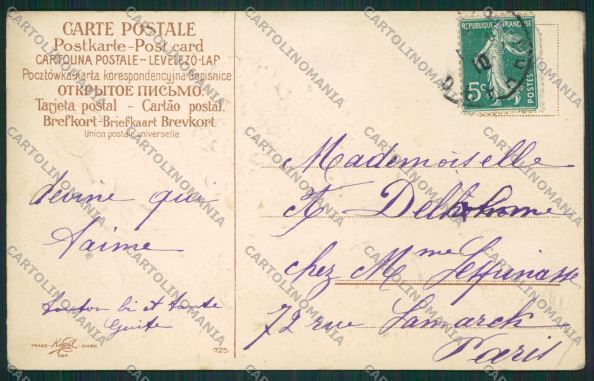 CARTE POSTALE
Postkarte-Post card
CARTOLINA POSTALE-LEVELEZÖ-LAP
Pocztówka-karta korespondencyjna-Dopisnice
ОТКРЫТОЕ ПИСЬМО.
Tarjeta postal - Cartão postal.
Brefkort-Briefkaart Brevkort
Union postale universelle
devine qui
t'aime
et tante
Guite
TRADE MARK
DEP.
725
REPUBLIQUE FRANÇAISE
5c
POSTES
Mademoiselle
chez Mme
72 rue Lamarck
Paris
CARTOLINOMANIA